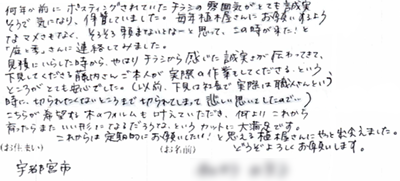 何年か前にポスティングされていたチラシの雰囲気がとても誠実
そうで気になり、保管していました。毎年植木屋さんにお願いするよう
なマメさもなく、そろそろ頼まないとな…と思って、この時が来た！と
「庭〇〇」さんに連絡してみました。
見積にいらした時から、やはりチラシから感じた誠実さが伝わってきて、
下見してくださる藤井さんご本人が実際の作業もしてくださる、という
ところがとても安心でした。（以前、下見は社長で実際は職人さんという
時に、切られたくないところまで切られてしまって悲しい思いをしましたので…）
こちらが希望する木のフォルムも叶えていただき、何よりこれから
育ったらまたいい形になるだろうな、というカットに大満足です。
これからは定期的にお願いしたい！と思える植木屋さんにやっと出会えました。
どうぞよろしくお願いします。
(お住まい) (お名前)
宇都宮市